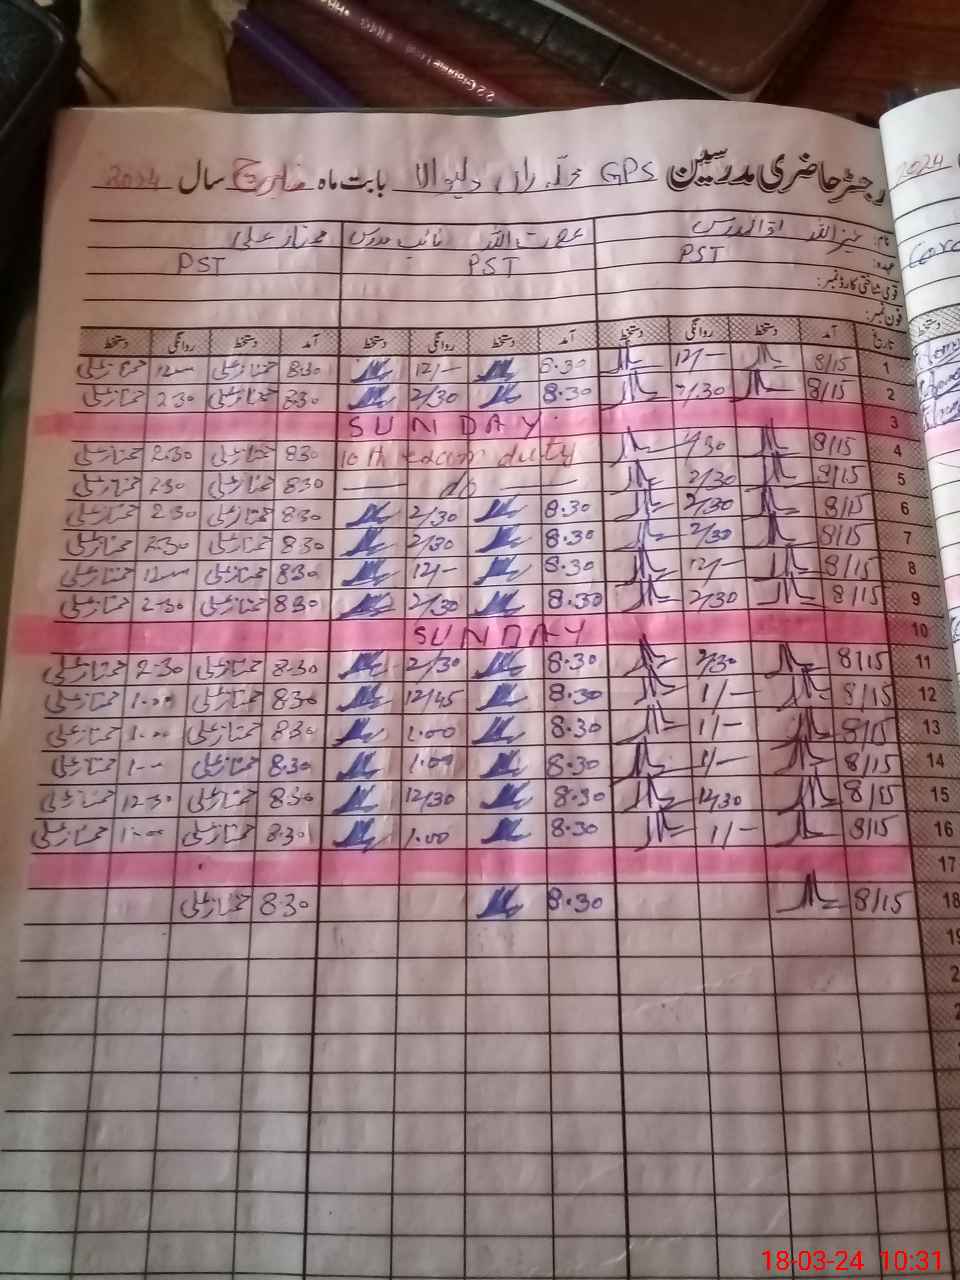 رجسٹر حاضری مدرسین GPS محلہ بابت ماہ مارچ سال 2024
نام: اول مدرس نائب مدرس ممتاز علی
عہدہ: PST PST PST
قومی شناختی کارڈ نمبر:
فون نمبر:
تاریخ آمد دستخط روانگی دستخط آمد دستخط روانگی دستخط آمد دستخط روانگی دستخط
1 8/15 12/- 8.30 12/- 8.30 ممتاز علی 12 ممتاز علی
2 8/15 2/30 8.30 2/30 8.30 ممتاز علی 2.30 ممتاز علی
3 SUNDAY
4 8/15 2/30 10th exam duty 8.30 ممتاز علی 2.30 ممتاز علی
5 8/15 2/30 — do — 8.30 ممتاز علی 2.30 ممتاز علی
6 8/15 2/30 8.30 2/30 8.30 ممتاز علی 2.30 ممتاز علی
7 8/15 2/30 8.30 2/30 8.30 ممتاز علی 2.30 ممتاز علی
8 8/15 12/- 8.30 12/- 8.30 ممتاز علی 12 ممتاز علی
9 8/15 2/30 8.30 2/30 8.30 ممتاز علی 2.30 ممتاز علی
10 SUNDAY
11 8/15 2/30 8.30 2/30 8.30 ممتاز علی 2.30 ممتاز علی
12 8/15 1/- 8.30 12/45 8.30 ممتاز علی 1.00 ممتاز علی
13 8/15 1/- 8.30 1.00 8.30 ممتاز علی 1.00 ممتاز علی
14 8/15 1/- 8.30 1.00 8.30 ممتاز علی 1.00 ممتاز علی
15 8/15 12/30 8.30 12/30 8.30 ممتاز علی 12.30 ممتاز علی
16 8/15 1/- 8.30 1.00 8.30 ممتاز علی 1.00 ممتاز علی
17
18 8/15 8.30 8.30 ممتاز علی
2024
18-03-24 10:31